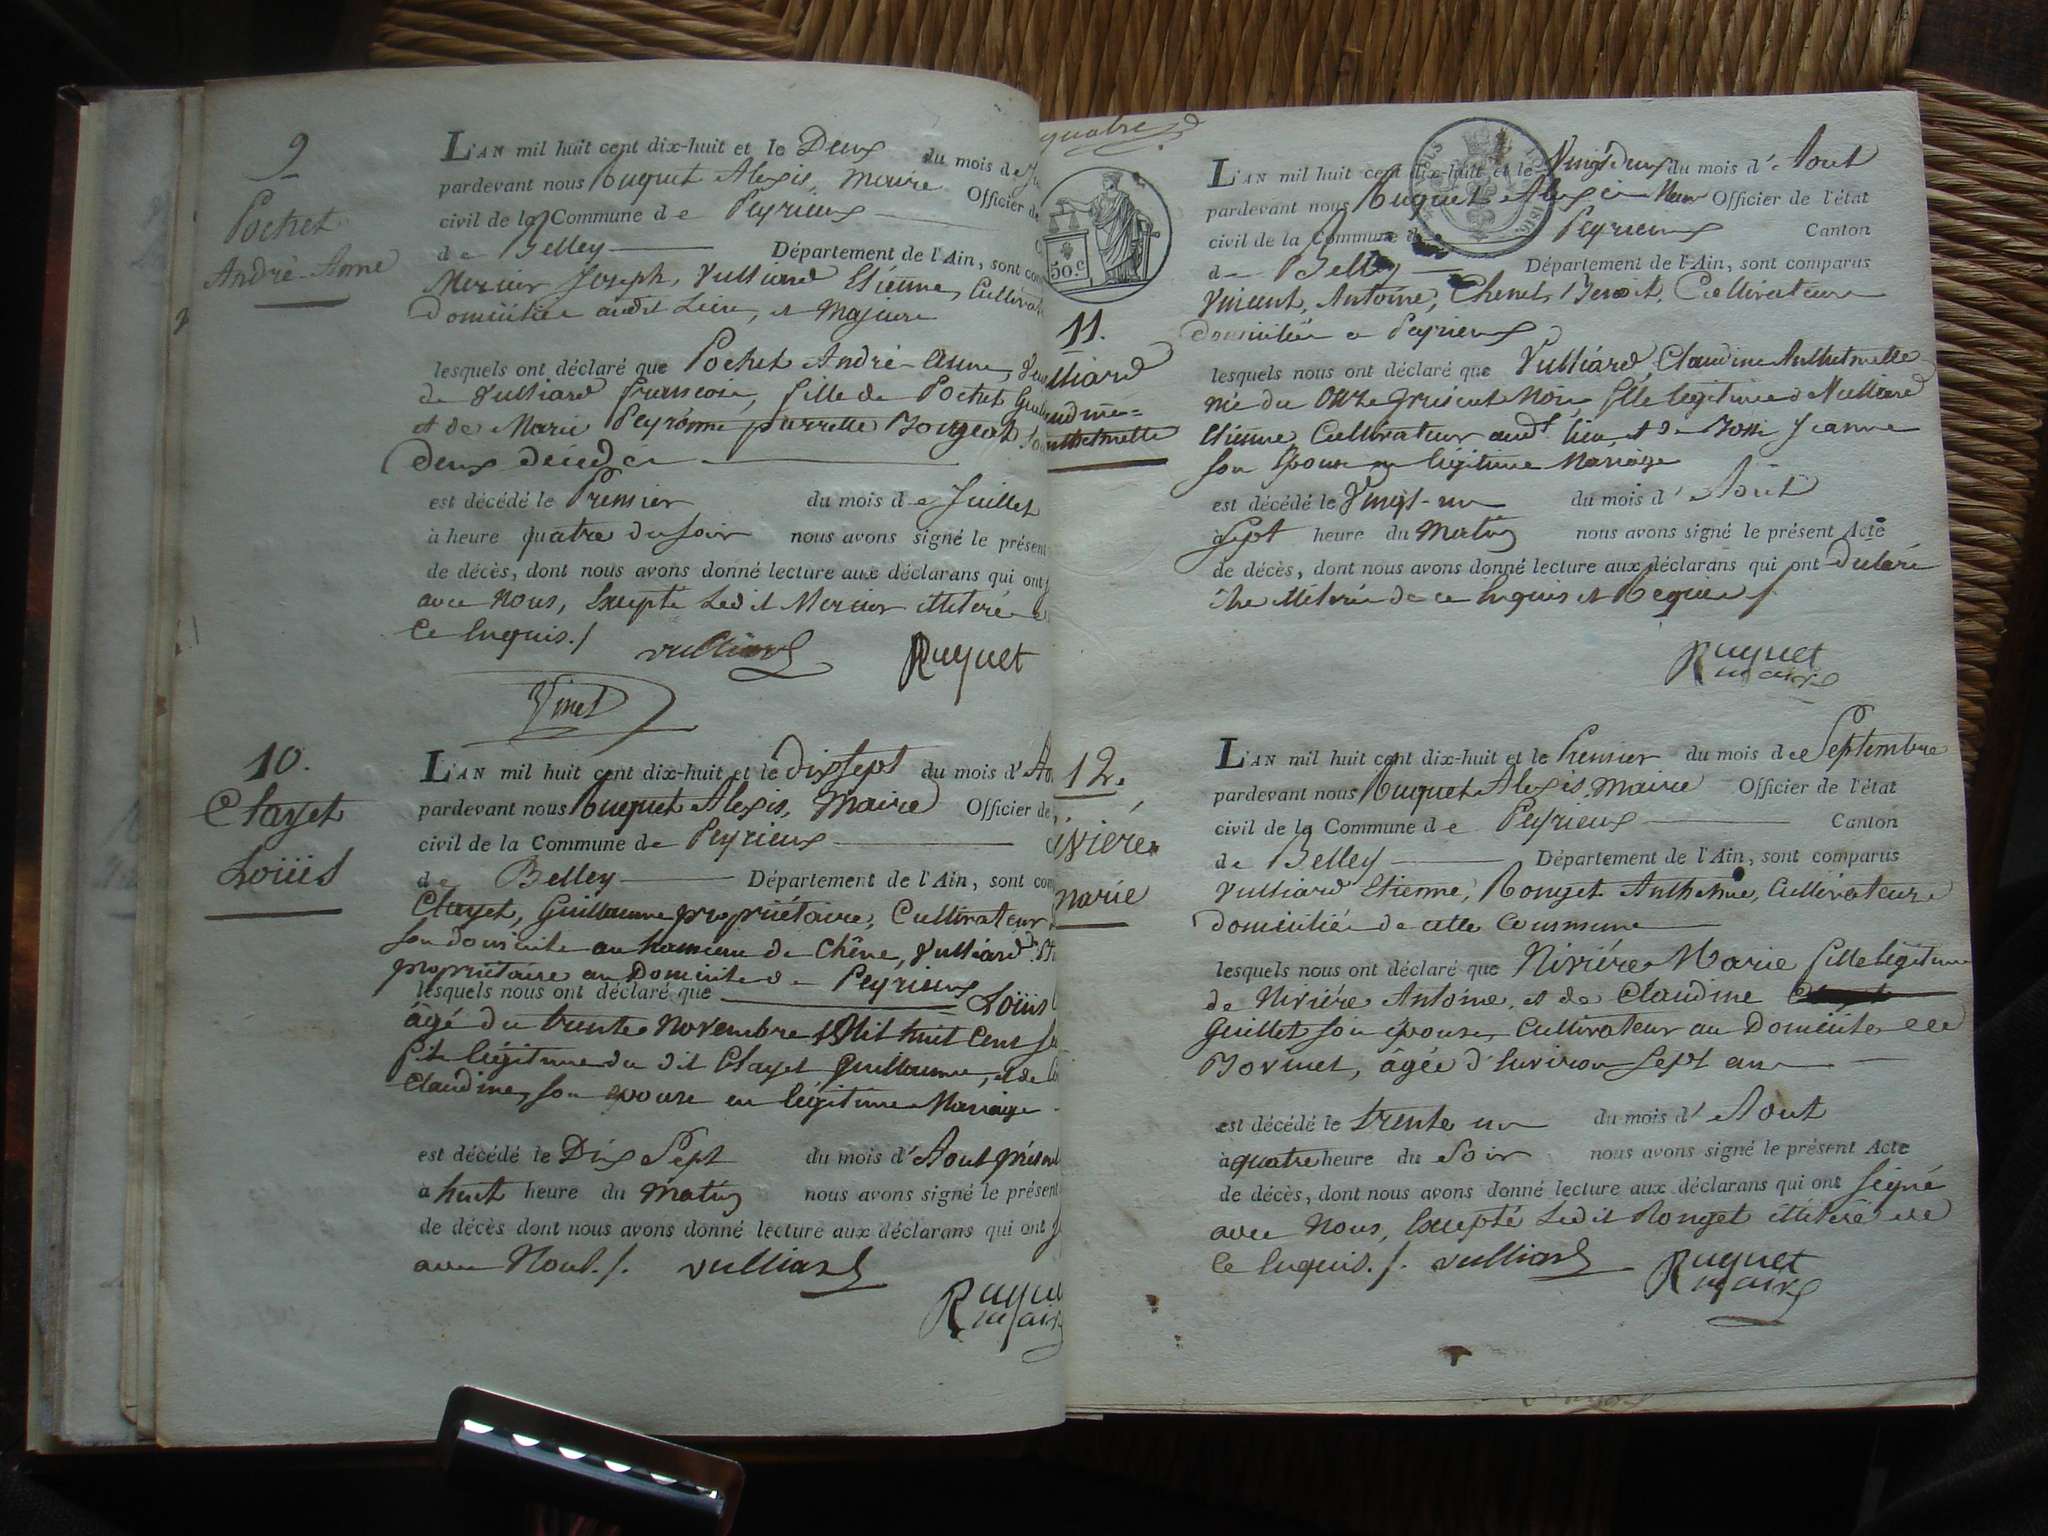 9
Pochet
André-Anne
L'AN mil huit cent dix-huit et le Deux du mois de
pardevant nous Ruquet Alexis, Maire Officier de
civil de la Commune de Peyrieux
de Belley Département de l'Ain, sont
Mercier Joseph, Vulliard Etienne, Cultivat
Domiciliés audit Lieu, et Majeurs
lesquels ont déclaré que Pochet André-Anne,
de Vulliard françois, fille de Pochet
et de Marie Peyronne pierrette
deux décédés
est décédé le Premier du mois de Juillet
à heure quatre du soir nous avons signé le présent
de décès, dont nous avons donné lecture aux déclarans qui ont
avec Nous, Excepté Ledit Mercier illiteré
Ce Enquis./
vulliard Ruquet
10.
Clayet
Loüis
L'AN mil huit cent dix-huit et le dix sept du mois d'
pardevant nous Ruquet Alexis, Maire Officier de
civil de la Commune de Peyrieux
de Belley Département de l'Ain, sont
Clayet, Guillaume propriétaire, Cultivateur
son domicile au hameau de Chêne, Vulliard
propriétaire au Domicile de Peyrieux
lesquels nous ont déclaré que Loüis
âgé du trente Novembre Mil huit Cent
fils légitime du dit Clayet Guillaume, et de
Claudine, son epouse en légitime Mariage
est décédé le Dix Sept du mois d'Aout présent
à huit heure du Matin nous avons signé le présent
de décès dont nous avons donné lecture aux déclarans qui ont
avec Nous./. vulliard
Ruquet
maire
quatre
50.c
11.
lliard
L'AN mil huit cent dix-huit et le Vingt deux du mois d'Aout
pardevant nous Ruquet Alexis Maire Officier de l'état
civil de la Commune de Peyrieux Canton
de Belley Département de l'Ain, sont comparus
Vincent, Antoine, Chenet, Benoit, Cultivateurs
domiciliés a Peyrieux
lesquels nous ont déclaré que Vulliard, Claudine Anthelmette
née du Onze présent Mois, fille légitime de Vulliard
Etienne, Cultivateur audt lieu, et de Jeanne
son Epouse en légitime Mariage
est décédé le Vingt-un du mois d'Aout
à Sept heure du Matin nous avons signé le présent Acte
de décès, dont nous avons donné lecture aux déclarans qui ont Déclaré
être illiterés de ce Enquis et Requis /.
Ruquet
maire
12.
ivière
marie
L'AN mil huit cent dix-huit et le Premier du mois de Septembre
pardevant nous Ruquet Alexis, Maire Officier de l'état
civil de la Commune de Peyrieux Canton
de Belley Département de l'Ain, sont comparus
Vulliard Etienne, Rouget Anthelme, Cultivateurs
domiciliés de cette Commune
lesquels nous ont déclaré que Nivière Marie fille légitime
de Nivière Antoine, et de Claudine
Guillet son épouse, Cultivateur au Domicile de
agée d'Environ Sept ans
est décédé le trente un du mois d'Aout
à quatre heure du Soir nous avons signé le présent Acte
de décès, dont nous avons donné lecture aux déclarans qui ont Signé
avec Nous, Excepté Ledit Rouget illiteré de
Ce Enquis./. vulliard Ruquet
maire